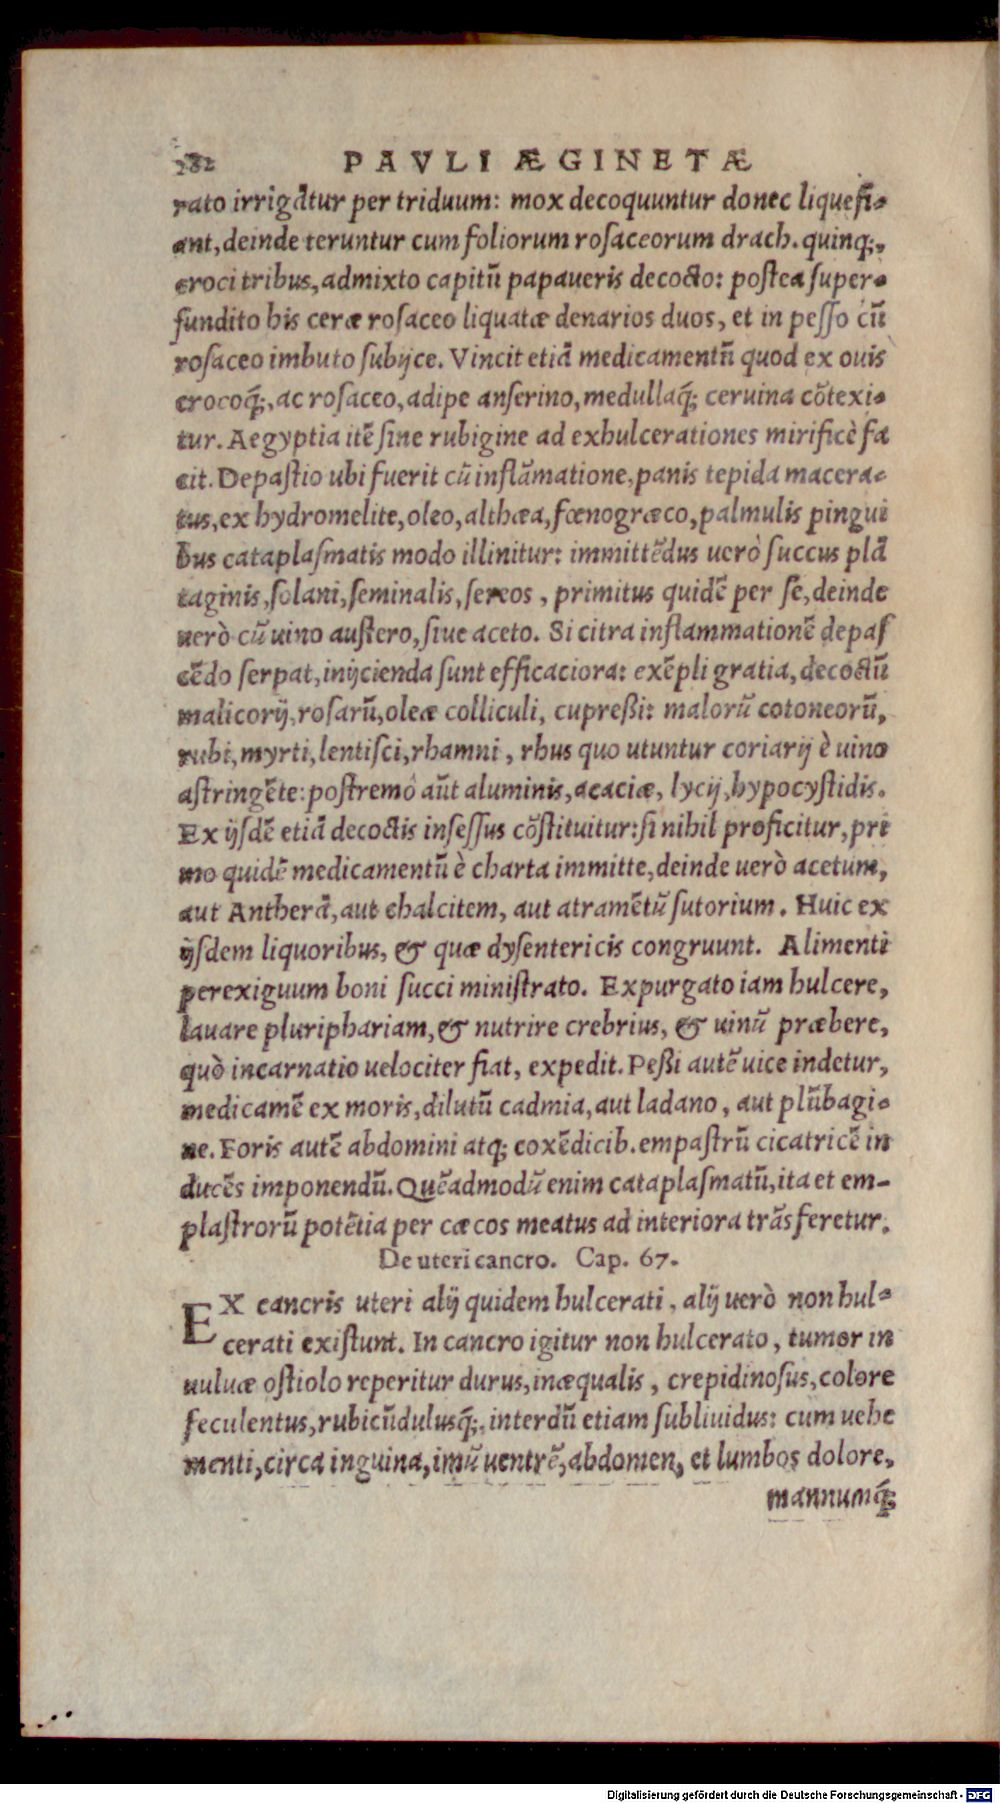 282 PAVLI ÆGINETÆ
rato irrigātur per triduum: mox decoquuntur donec liquefi-
ant, deinde teruntur cum foliorum rosaceorum drach. quinq;,
croci tribus, admixto capitū papaueris decocto: postea super-
fundito his ceræ rosaceo liquatæ denarios duos, et in pesso cū
rosaceo imbuto subijce. Vincit etiā medicamentū quod ex ouis
crocoq́;, ac rosaceo, adipe anserino, medullaq́; ceruina cōtexi-
tur. Aegyptia itē sine rubigine ad exhulcerationes mirificè fa
cit. Depastio ubi fuerit cū inflāmatione, panis tepida macera-
tus, ex hydromelite, oleo, althæa, fœnogræco, palmulis pingui
bus cataplasmatis modo illinitur: immittēdus uerò succus plā
taginis, solani, seminalis, sereos, primitus quidē per se, deinde
uerò cū uino austero, siue aceto. Si citra inflammationē depas
cēdo serpat, inijcienda sunt efficaciora: exēpli gratia, decoctū
malicorij, rosarū, oleæ colliculi, cupreßi: malorū cotoneorū,
rubi, myrti, lentisci, rhamni, rhus quo utuntur coriarij è uino
astringēte: postremò aūt aluminis, acaciæ, lycij, hypocystidis.
Ex ijsdē etiā decoctis insessus cōstituitur: si nihil proficitur, pri
mo quidē medicamentū è charta immitte, deinde uerò acetum,
aut Antherā, aut chalcitem, aut atramētū sutorium. Huic ex
ijsdem liquoribus, & quæ dysentericis congruunt. Alimenti
perexiguum boni succi ministrato. Expurgato iam hulcere,
lauare pluriphariam, & nutrire crebrius, & uinū præbere,
quò incarnatio uelociter fiat, expedit. Peßi autē uice indetur,
medicamē ex moris, dilutū cadmia, aut ladano, aut plūbagi-
ne. Foris autē abdomini atq; coxēdicib. empastrū cicatricē in
ducēs imponendū. Quēadmodū enim cataplasmatū, ita et em-
plastrorū potētia per cæcos meatus ad interiora trāsferetur.
De uteri cancro. Cap. 67.
EX cancris uteri alij quidem hulcerati, alij uerò non hul-
cerati existunt. In cancro igitur non hulcerato, tumor in
uuluæ ostiolo reperitur durus, inæqualis, crepidinosus, colore
feculentus, rubicūdulusq́;, interdū etiam subliuidus: cum uehe
menti, circa inguina, imū uentrē, abdomen, et lumbos dolore,
mannumq́;
Digitalisierung gefördert durch die Deutsche Forschungsgemeinschaft - DFG